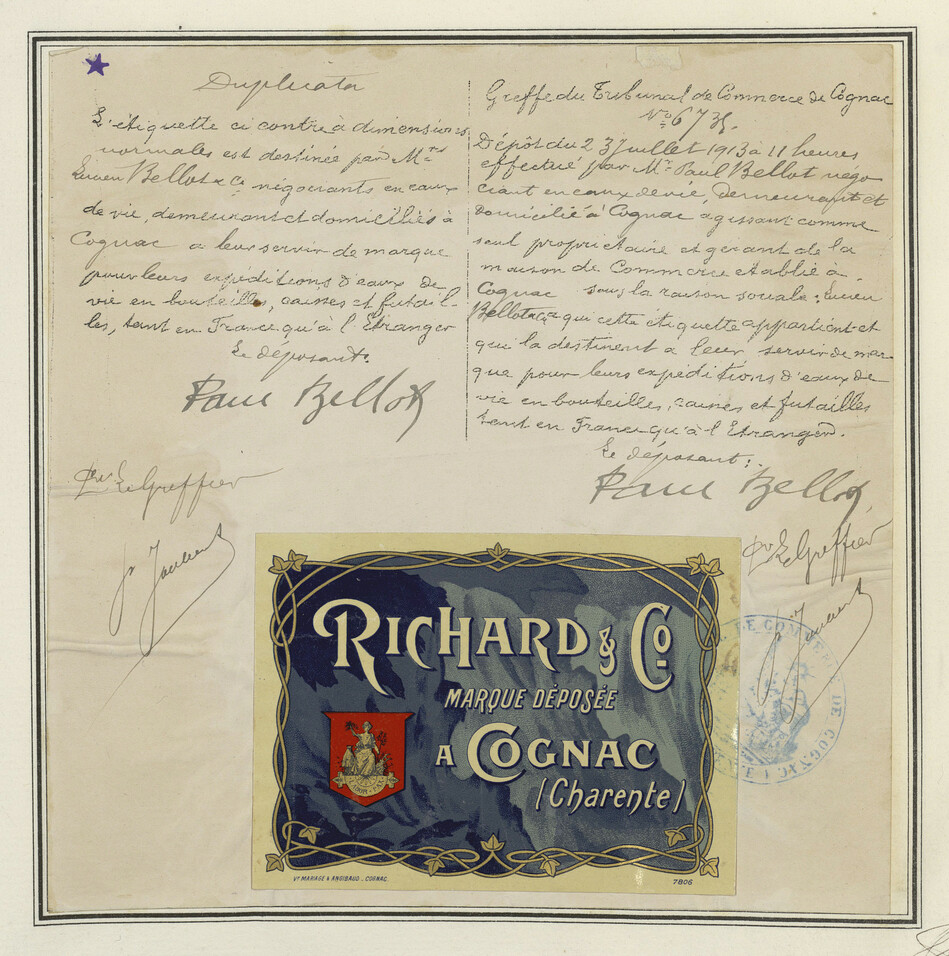 Duplicata
L'étiquette ci contre à dimensions
normales est destinée par Mrs
Lucien Bellot & Cie négociants en eaux
de vie, demeurant et domiciliés à
Cognac a leur servir de marque
pour leurs expéditions d'eaux de
vie en bouteilles, caisses et futail-
les, tant en France qu'à l'Etranger
Le déposant:
Paul Bellot
Pr Le Greffier
Greffe du Tribunal de Commerce de Cognac
No 6735.
Dépôt du 23 Juillet 1913 à 11 heures
effectué par Mr Paul Bellot négo
ciant en eaux de vie, demeurant et
domicilié à Cognac agissant comme
seul propriétaire et gérant de la
maison de Commerce établie à
Cognac sous la raison sociale: Lucien
Bellot & Cie à qui cette étiquette appartient et
qui la destinent a leur servir de mar-
que pour leurs expéditions d'eaux de
vie en bouteilles, caisses et futailles
tant en France qu'à l'Etranger.
Le déposant:
Paul Bellot
Pr Le Greffier
RICHARD & Co
MARQUE DÉPOSÉE
A COGNAC
(Charente)
Vve MARIAGE & ANGIBAUD _ COGNAC.
7806
DE COMMERCE DE COGNAC